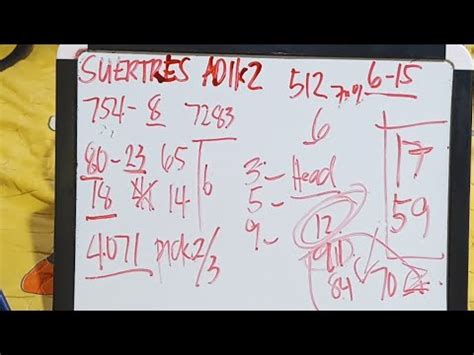 SUERTRES ADIK2
512 70% 6-15
754-8 7283
6
80-23 65 6
78 14
4071 PICK2/3
3- Head
5-
9-
12
91
84
17
59
70